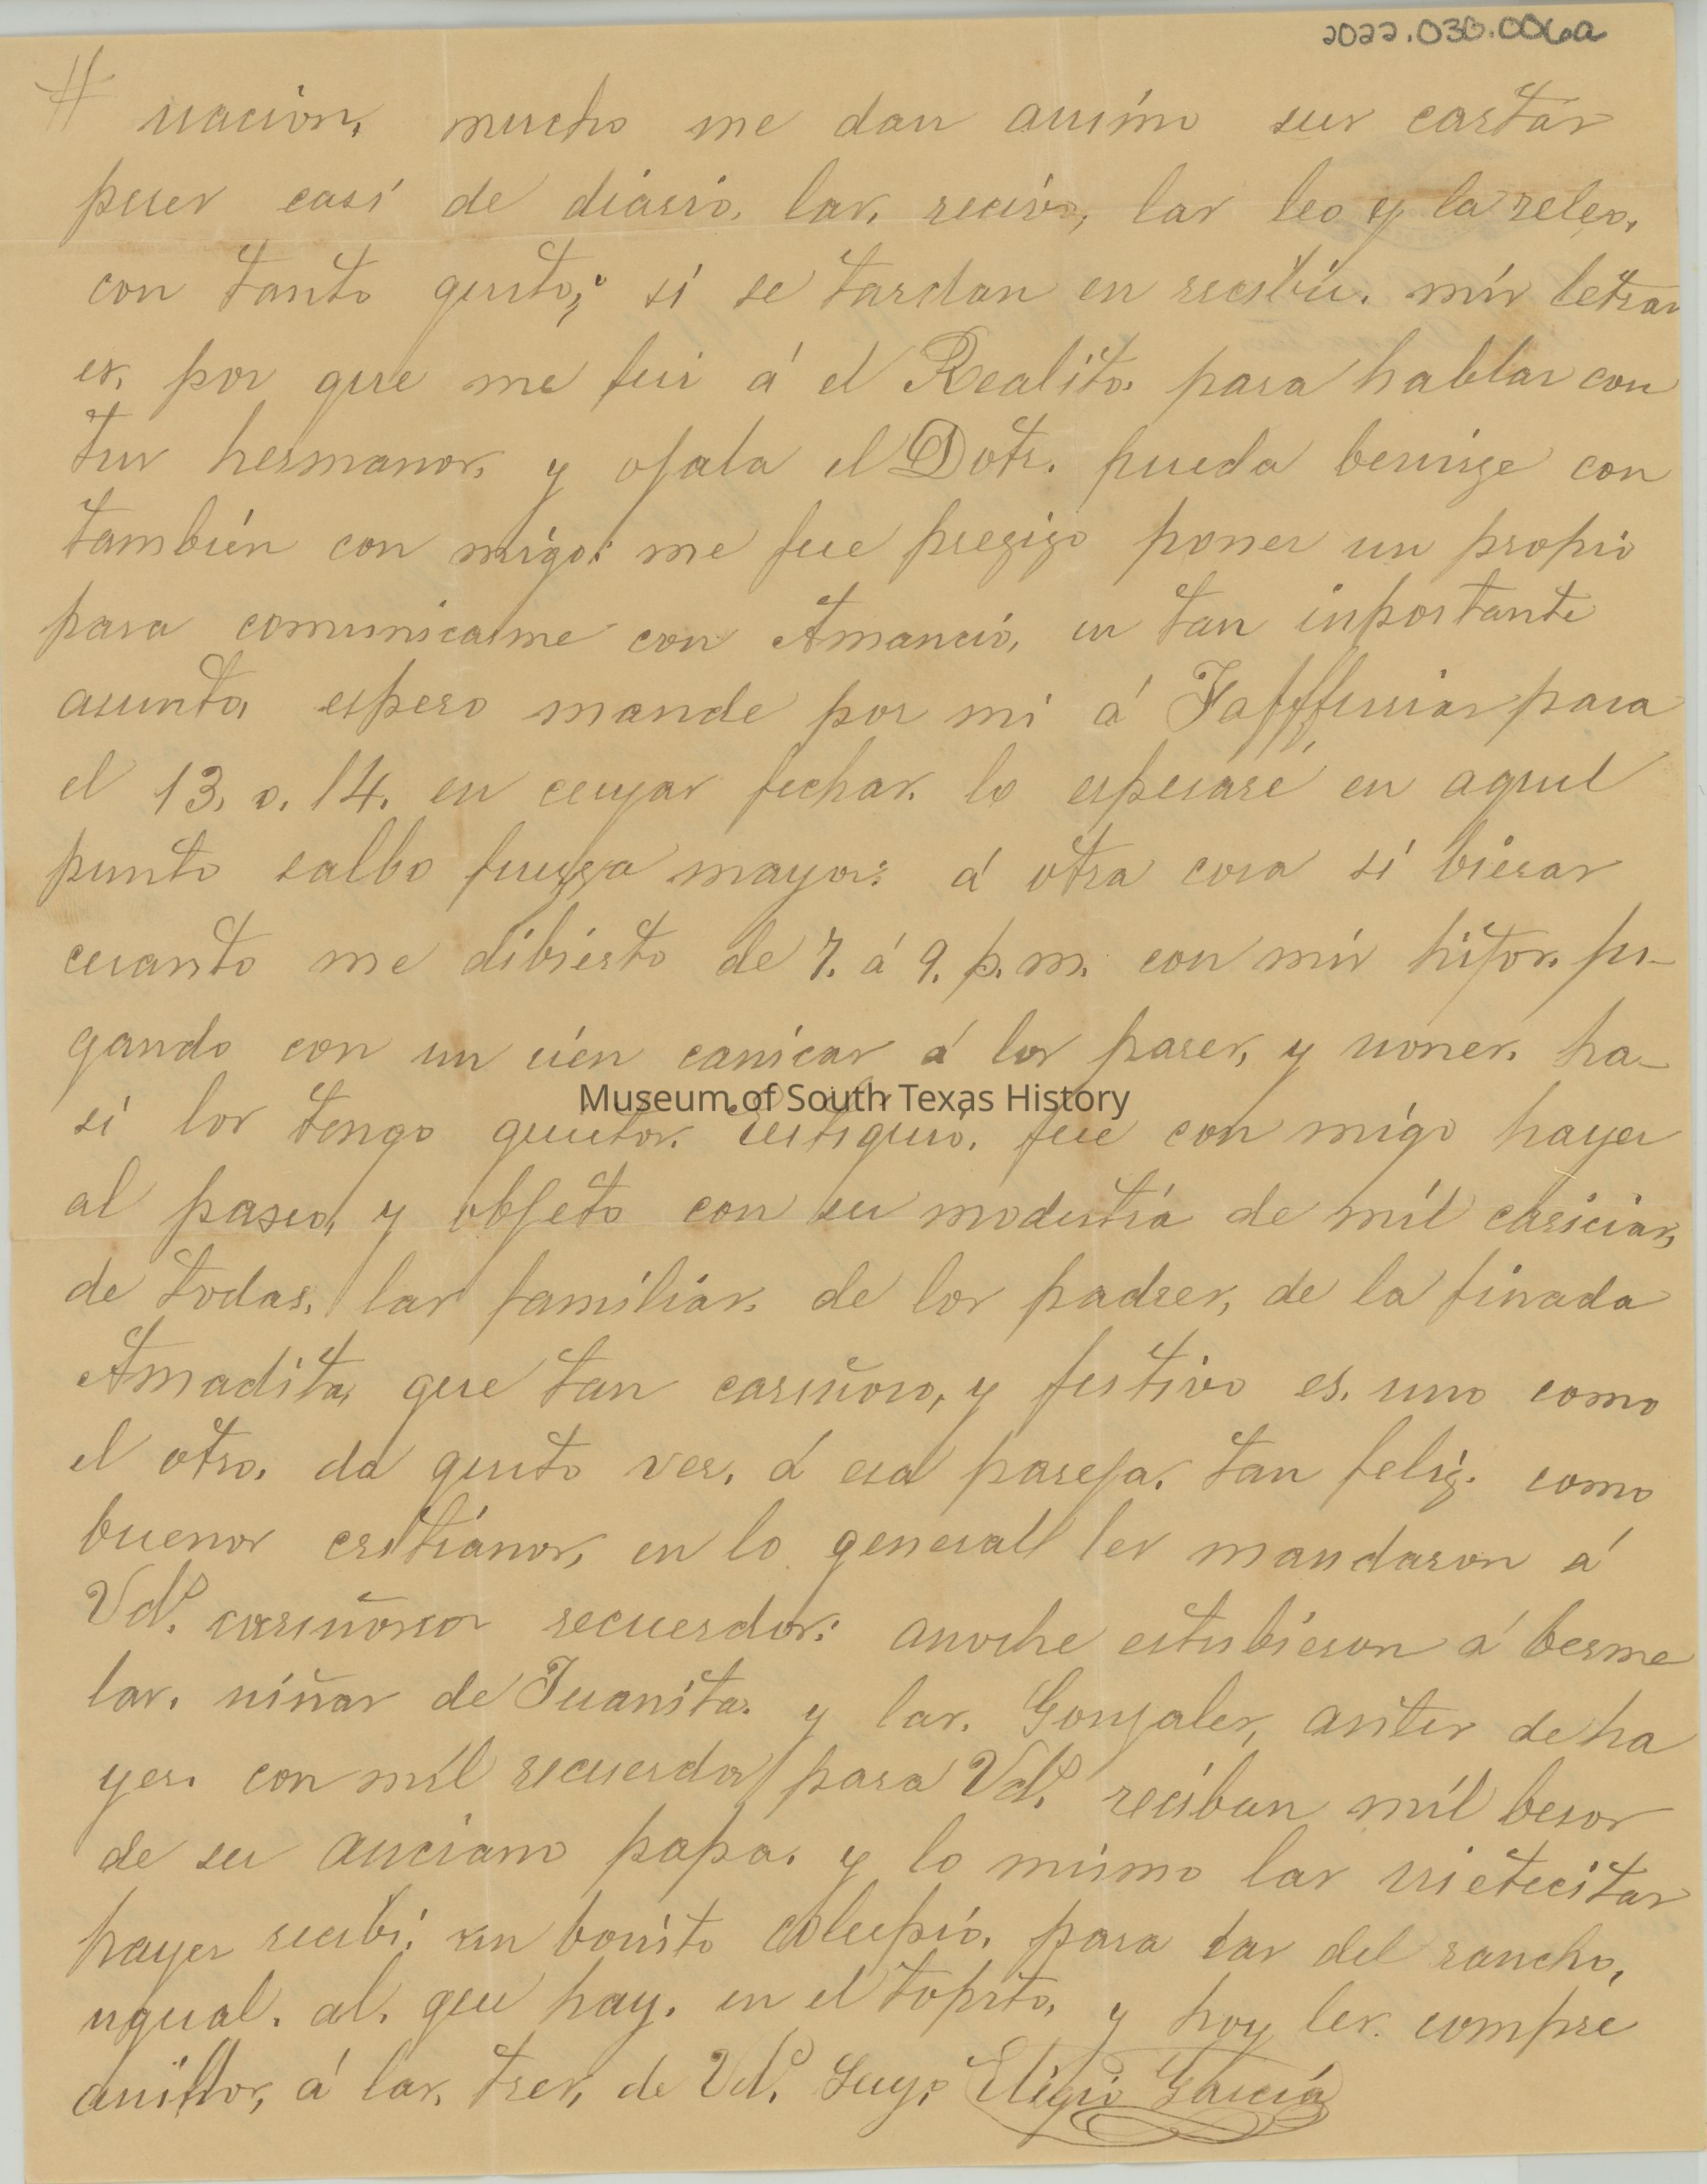 2022.030.006a
# nacion, mucho me dan animo sus cartas
pues casi de diario, las, recivo, las leo y la releo,
con tanto gusto; si se tardan en recibir. mis letras
es, por que me fui á el Realito, para hablar con
tus hermanos, y ojala el Dotr. pueda benirze con
también con migo: me fue prezizo poner un propio
para comunicarme con Amancio, en tan inportante
asunto, espero mande por mi á Falffurrias para
el 13, o, 14, en cuyas fechas, lo esperaré en aquel
punto salbo fuerza mayor: á otra cosa si bieras
cuanto me dibierto de 7. á 9. p.m. con mis hijos, ju-
gando con un cien canicas á los pares, y nones, ha-
si los tengo quietos. Eutiquio, fue con migo hayer
al paseo, y objeto con su modestia de mil caricias,
de todas, las familias, de los padres, de la finada
Amadita, que tan cariñoso, y festivo es, uno como
el otro, da gusto ver, á esa pareja, tan feliz. como
buenos cristianos, en lo general les mandaron á
Vds. cariñosos recuerdos: anoche estubieron á berme
las, niñas de Juanita, y las, Gonzales, antes de ha
yer. con mil recuerdos para Vds. reciban mil besos
de su anciano papa. y lo mismo las nietecitas
hayer recibi: un bonito colupio, para las del rancho,
ygual. al. que hay. en el topito, y hoy les. compre
anillos, á las, tres, de Vds. Suyo Eligio García
Museum of South Texas History